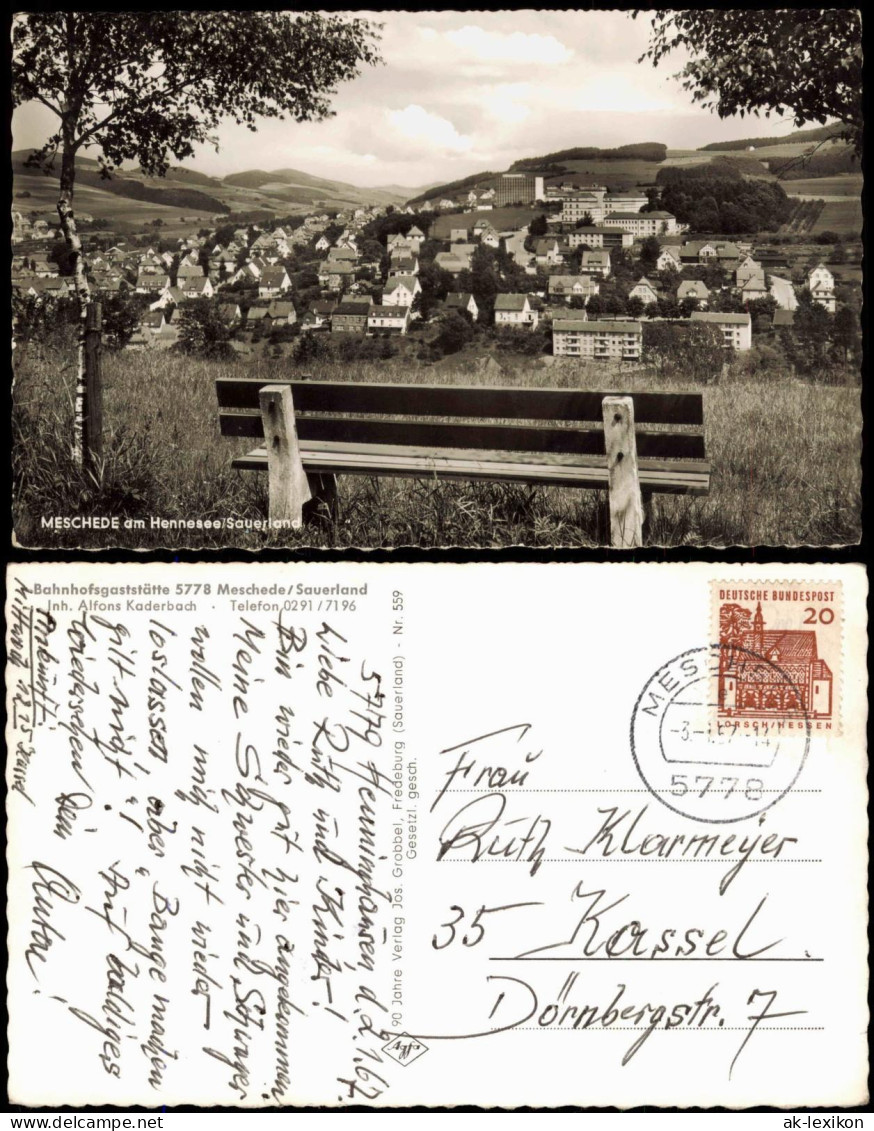 MESCHEDE am Hennesee/Sauerland
Bahnhofsgaststätte 5778 Meschede/Sauerland
Inh. Alfons Kaderbach · Telefon 0291/7196
5779 Henninghausen, d. 2.1.67
Liebe Ruth und Kinder!
Bin wieder gut hier angekommen.
Meine Schwester und Schwager
wollen mich nicht wieder
loslassen, aber Bange machen
gilt nicht! Auf baldiges
Wiedersehen Dein
Ankunft:
Mittwoch 12.25 Kassel
90 Jahre Verlag Jos. Grobbel, Fredeburg (Sauerland) - Nr. 559
Gesetzl. gesch.
DEUTSCHE BUNDESPOST
20
LORSCH/HESSEN
5778
Frau
Ruth Klarmeyer
35 Kassel
Dörnbergstr. 7
ak-lexikon